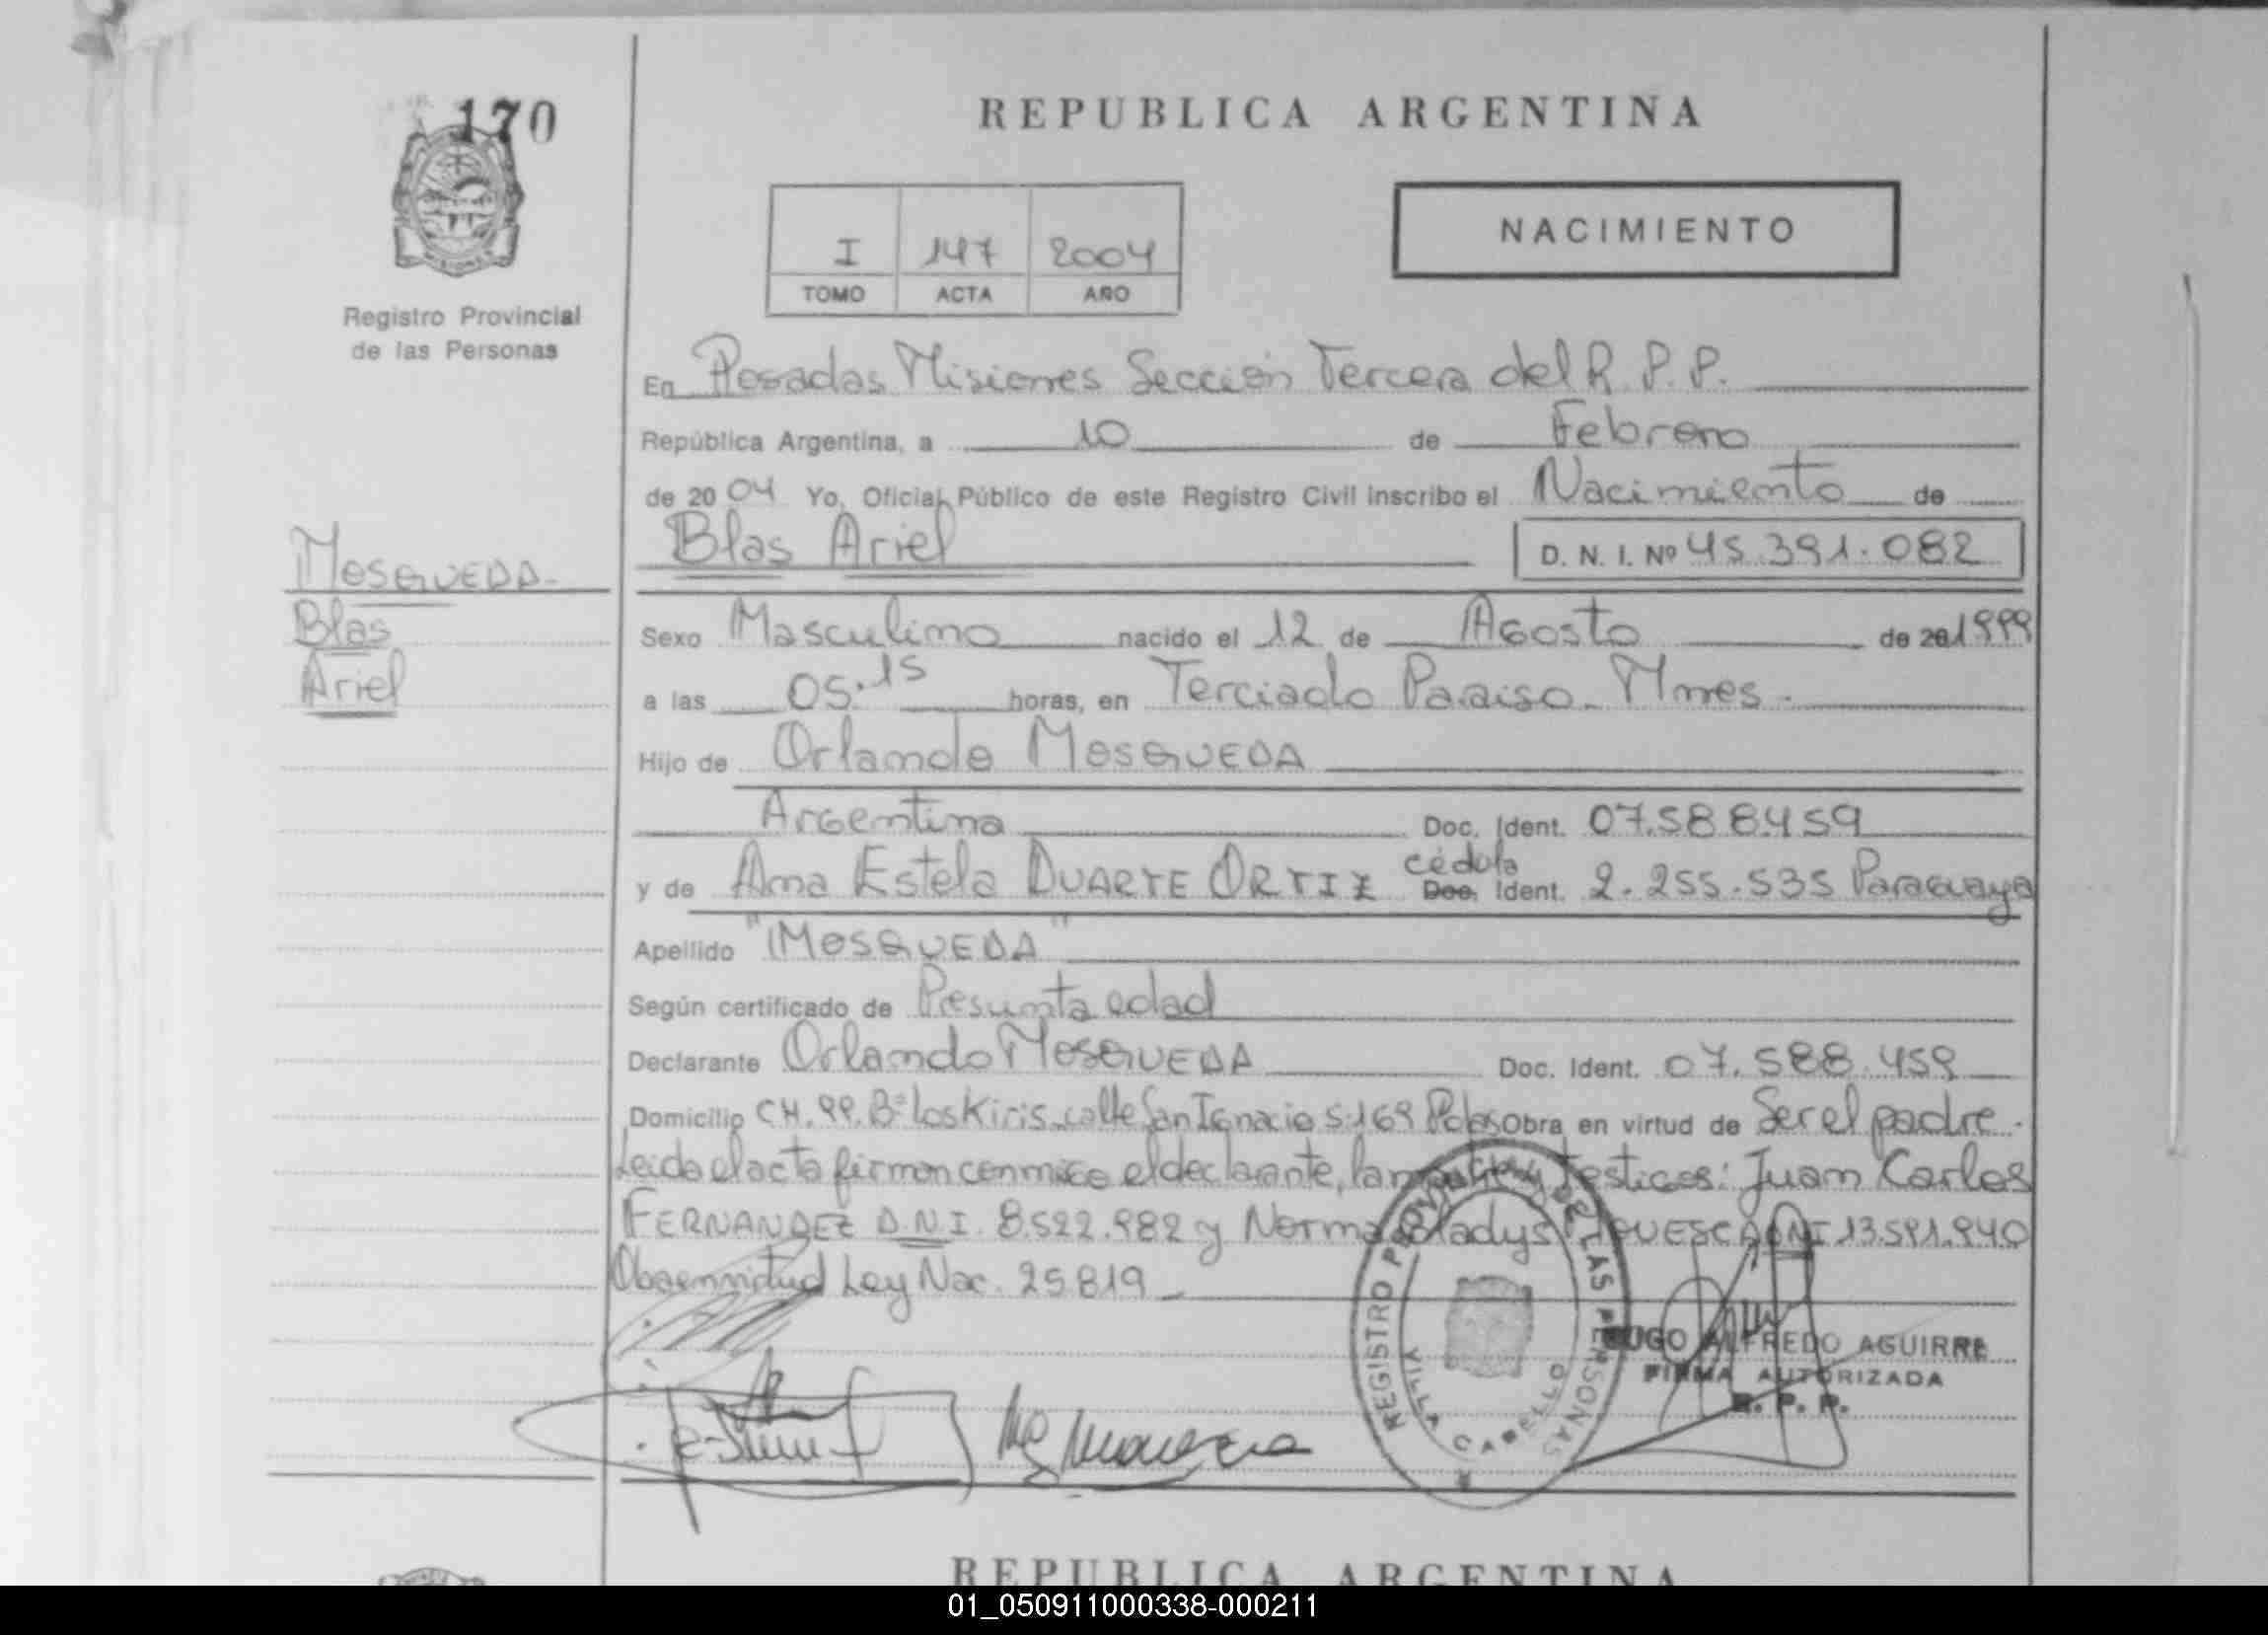 170
REPUBLICA ARGENTINA
I 147 2004
TOMO ACTA AÑO
NACIMIENTO
Registro Provincial
de las Personas
En Posadas Misiones Sección Tercera del R. P. P.
República Argentina, a 10 de Febrero
de 2004 Yo, Oficial Público de este Registro Civil inscribo el Nacimiento de
Blas Ariel D. N. I. Nº 45.391.082
MOSQUEDA
Blas
Ariel
Sexo Masculino nacido el 12 de Agosto de 1999
a las 05.15 horas, en Terciado Paraiso. Mnes.
Hijo de Orlando MOSQUEDA
Argentina Doc. Ident. 07.588.459
y de Ana Estela DUARTE ORTIZ cédula Doc. Ident. 2.255.535 Paraguaya
Apellido "MOSQUEDA"
Según certificado de Presunta edad
Declarante Orlando MOSQUEDA Doc. Ident. 07.588.459
Domicilio CH. 99. Bº Los Kiris calle San Ignacio 5169 Pdas Obra en virtud de Ser el padre.
Leida el acta firman conmigo el declarante, la madre y testigos: Juan Carlos
FERNANDEZ D.N.I. 8.522.982 y Norma Gladys DNI 13.591.940
Ley Nac. 25819
REGISTRO PROVINCIAL DE LAS PERSONAS
VILLA CABELLO
HUGO ALFREDO AGUIRRE
FIRMA AUTORIZADA
R. P. P.
REPUBLICA ARGENTINA
01_050911000338-000211